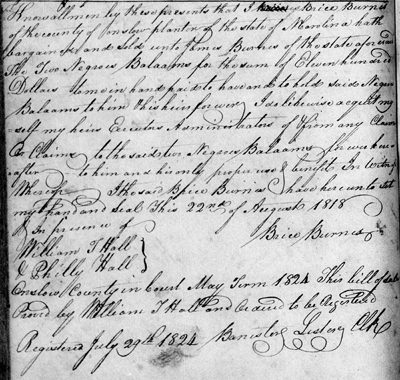 Know all men by these presents that I Brice Burnes
of the county of Onslow planter of the state of N Carolina hath
bargained and sold unto James Burnes of the state aforesaid
The Two Negroes Balaams for the sum of Eleven hundred
Dollars to me in hand paid to have and to hold said Negroes
Balaams to him & his heirs forever I do likewise acquit my
self my heirs Executors Administrators of & from any Claim
Or Claims to the said two Negroes Balaams for ever here
after to him and his only proper use & benefit In Witness
Whereof I the said Brice Burnes have hereunto set
my hand and seal This 22nd of August 1818
In presence of
Brice Burnes
William T Hall
& Philly Hall
Onslow County in Court May Term 1824 This bill of sale
Proved by William T Hall and Ordered to be Registered
Registered July 29th 1824 Banister Lester Clk